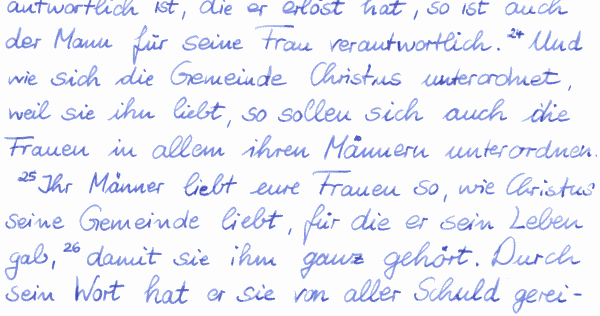 antwortlich ist, die er erlöst hat, so ist auch
der Mann für seine Frau verantwortlich. ²⁴ Und
wie sich die Gemeinde Christus unterordnet,
weil sie ihn liebt, so sollen sich auch die
Frauen in allem ihren Männern unterordnen.
²⁵ Ihr Männer liebt eure Frauen so, wie Christus
seine Gemeinde liebt, für die er sein Leben
gab, ²⁶ damit sie ihm ganz gehört. Durch
sein Wort hat er sie von aller Schuld gerei-